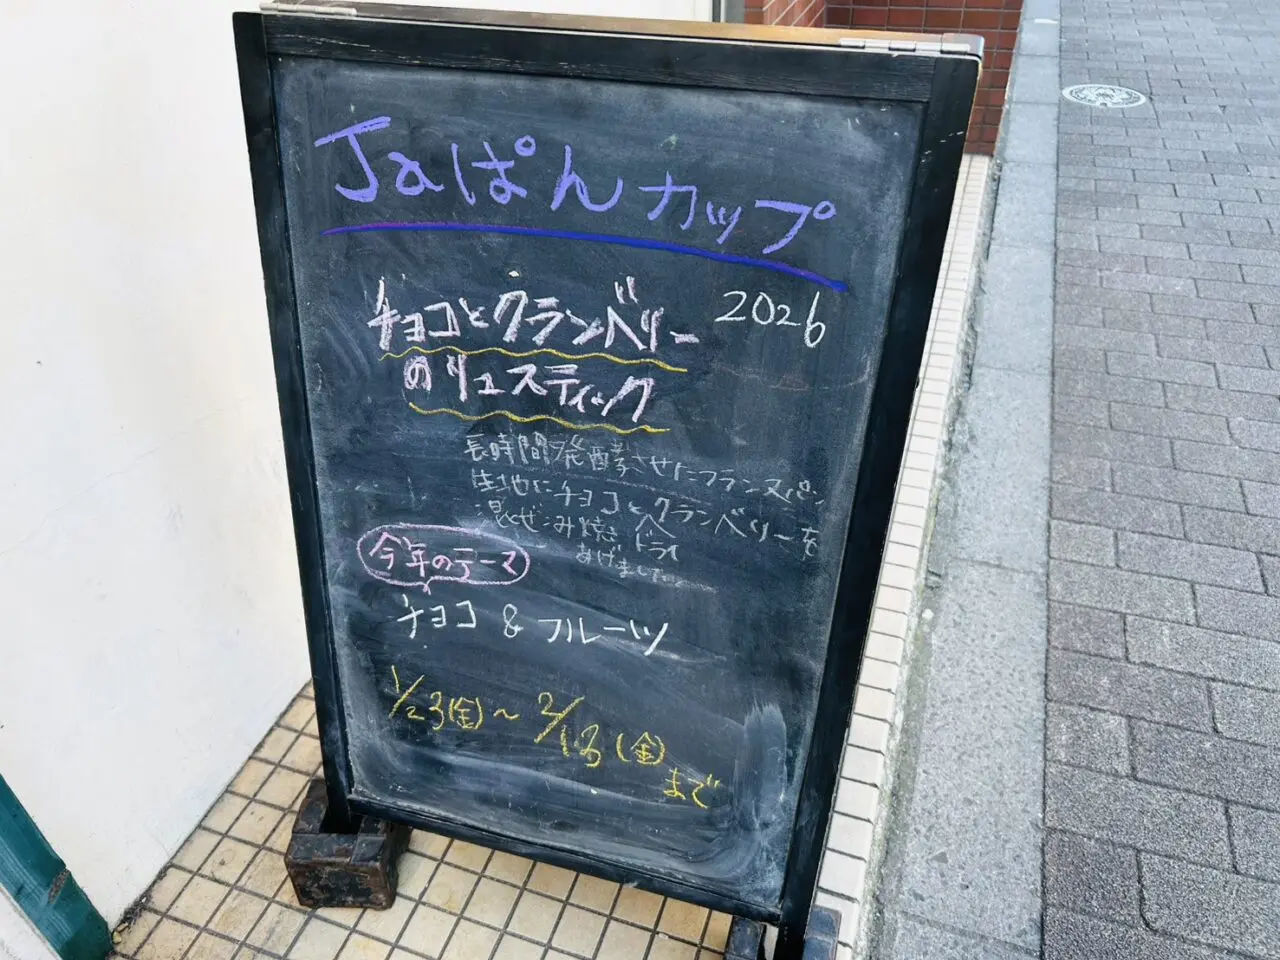 Jaぱんカップ
2026
チョコとクランベリー
のリュスティック
長時間発酵させたフランスパン
生地にチョコとクランベリーを
ドライ
混ぜこみ焼き
あげました。
今年のテーマ
チョコ & フルーツ
1/23(金)~2/13(金)
まで